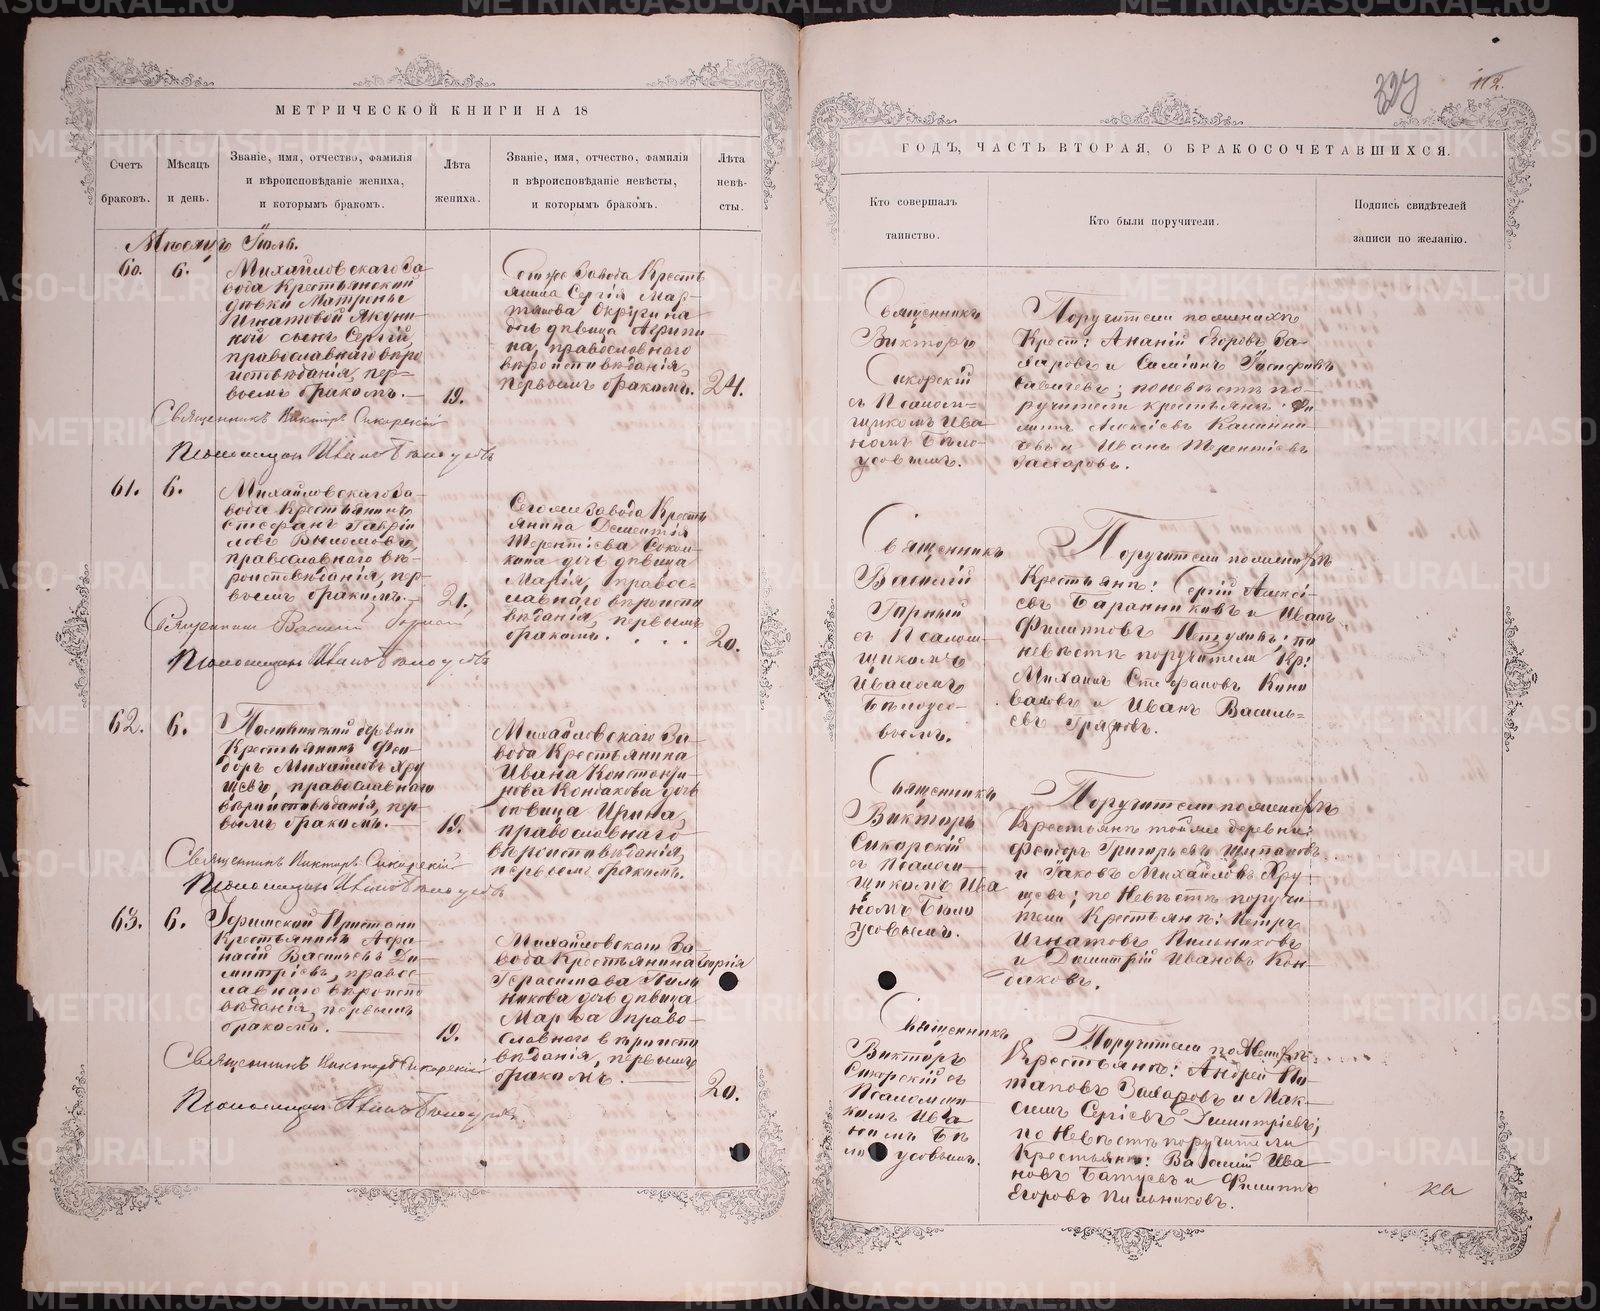 МЕТРИЧЕСКОЙ КНИГИ НА 18
Счетъ
браковъ.
Мѣсяцъ
и день.
Званіе, имя, отчество, фамилія
и вѣроисповѣданіе жениха,
и которымъ бракомъ.
Лѣта
жениха.
Званіе, имя, отчество, фамилія
и вѣроисповѣданіе невѣсты,
и которымъ бракомъ.
Лѣта
невѣ-
сты.
Мѣсяцъ Іюль.
60.
6.
Михайловскаго За
вода Крестьянской
дѣвки Матрены
Игнатовой
ной сынъ Сергій,
православнаго вѣро
исповѣданія, пер-
вымъ бракомъ.
19.
Сего же Завода Кресть
янина Сергія Мар-
дочь дѣвица Агрипи
на, православнаго
вѣроисповѣданія,
первымъ бракомъ.
24.
Священникъ Викторъ Сикорскій
Псаломщикъ Иванъ Бѣлоусовъ
61.
6.
Михайловскаго За-
вода Крестьянинъ
Стефанъ Гаврии
ловъ
православнаго вѣ-
роисповѣданія, пер-
вымъ бракомъ.
21.
Сего же Завода Кресть
янина Дементія
Терентіева
кина дочь дѣвица
Марія, правос-
лавнаго вѣроиспо
вѣданія, первымъ
бракомъ.
20.
Священникъ Василій Горный
Псаломщикъ Иванъ Бѣлоусовъ
62.
6.
деревни
Крестьянинъ Фео-
доръ Михайловъ Хру
щевъ, православнаго
вѣроисповѣданія, пер-
вымъ бракомъ.
19.
Михайловскаго За-
вода Крестьянина
Ивана Константи-
нова Кондакова дочь
дѣвица Ирина,
православнаго
вѣроисповѣданія,
первымъ бракомъ.
Священникъ Викторъ Сикорскій
Псаломщикъ Иванъ Бѣлоусовъ
63.
6.
Уфимской Пристани
Крестьянинъ Афа-
насій Васильевъ Ди-
митріевъ, правос-
лавнаго вѣроиспо
вѣданія, первымъ
бракомъ.
19.
Михайловскаго За-
вода Крестьянина
Герасимова Пиль
никова дочь дѣвица
Марѳа право-
славнаго вѣроиспо
вѣданія, первымъ
бракомъ.
20.
Священникъ Викторъ Сикорскій
Псаломщикъ Иванъ Бѣлоусовъ
112.
ГОДЪ, ЧАСТЬ ВТОРАЯ, О БРАКОСОЧЕТАВШИХСЯ.
Кто совершалъ
таинство.
Кто были поручители.
Подпись свидѣтелей
записи по желанію.
Священникъ
Викторъ
Сикорскій
съ Псалом-
щикомъ Ива
номъ Бѣло-
усовымъ.
Поручители по женихѣ
Крест: Ананій Егоровъ За-
харовъ и
по невѣстѣ по-
ручители крестьяне:
Калинни
и Иванъ Терентіевъ
Захаровъ.
Священникъ
Василій
Горный
съ Псалом-
щикомъ
Иваномъ
Бѣлоусо-
вымъ.
Поручители по женихѣ
Крестьяне: Сергій Алексі-
евъ Баранниковъ и Иванъ
Филипповъ по
невѣстѣ поручители Кр:
Михаилъ Стефановъ
и Иванъ Василь-
евъ
Священникъ
Викторъ
Сикорскій
съ Псалом-
щикомъ Ива
номъ Бѣло
усовымъ.
Поручители по женихѣ
Крестьяне той же деревни:
Феодоръ Григорьевъ
и Іаковъ Михайловъ Хру-
щевъ; по Невѣстѣ поручи-
тели Крестьяне: Петръ
Игнатовъ Пильниковъ
и Димитрій Ивановъ Кон-
даковъ.
Священникъ
Викторъ
Сикорскій съ
Псаломщи
комъ Ива
номъ Бѣ
лоусовымъ.
Поручители по Женихѣ:
Крестьяне: Андрей По-
таповъ Захаровъ и Мак-
симъ Сергіевъ Димитріевъ;
по Невѣстѣ поручители
Крестьяне: Василій Ива
новъ Батуевъ и Филиппъ
Егоровъ Пильниковъ.